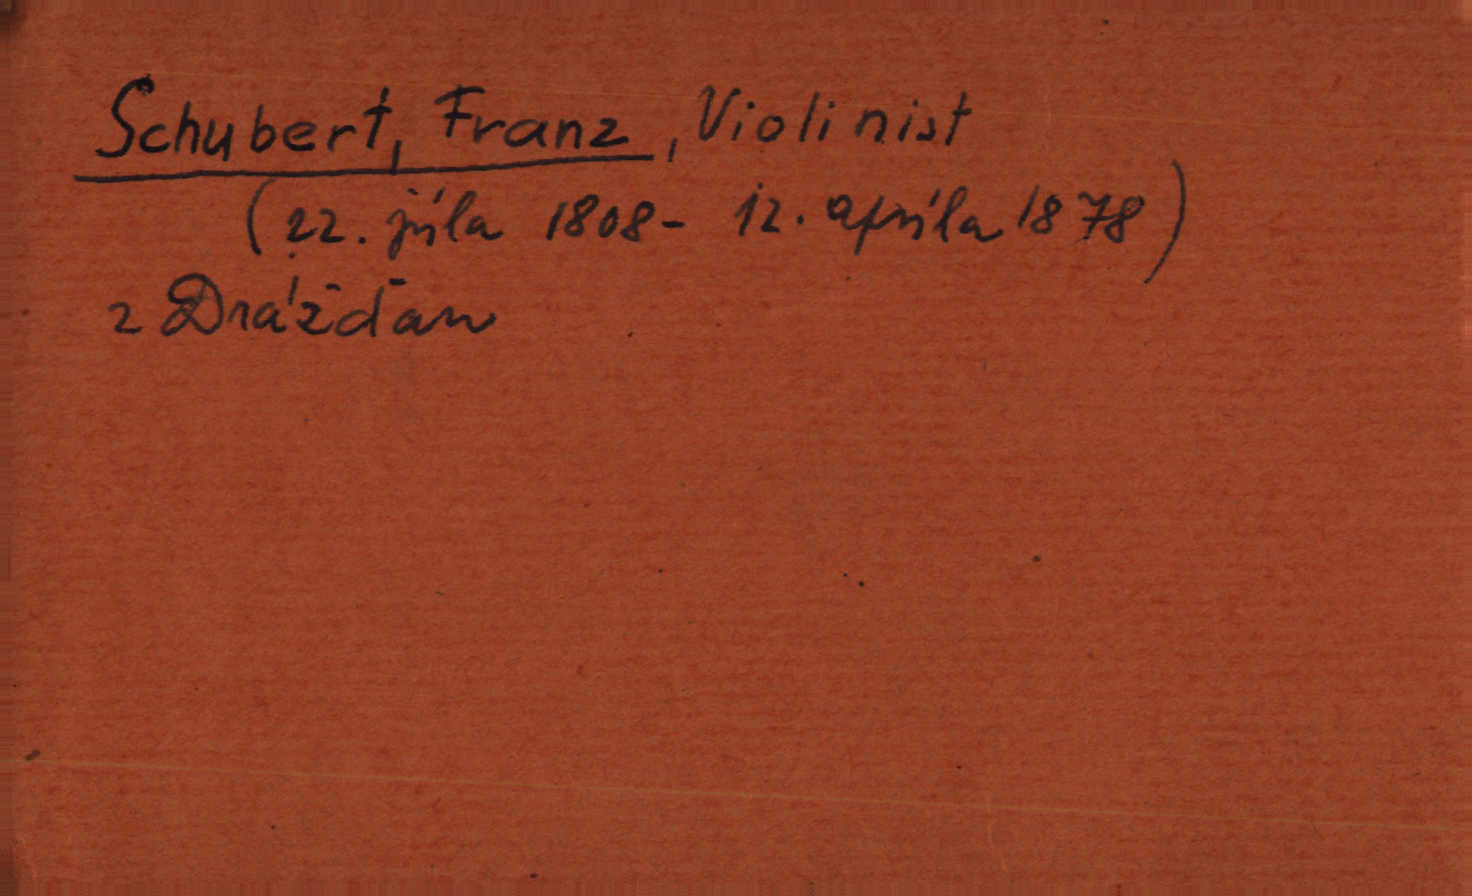 Schubert, Franz, Violinist
(22. júla 1808 - 12. apríla 1878)
z Drážďan